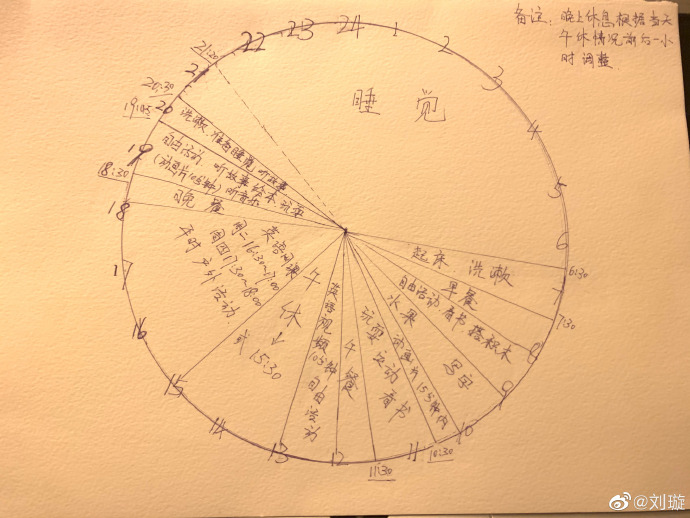 备注：晚上休息根据当天
午休情况前后一小
时调整
24
1
2
3
4
5
6
6:30
7
7:30
8
9
10
10:30
11
11:30
12
13
14
15
16
17
18
18:30
19
19:45
20
20:30
21
21:20
22
23
睡觉
起床 洗漱
早餐
自由活动 看书 搭积木
写字
水果
玩耍 运动 看书
午餐
英语视频10分钟
自由活动
午休
↓
或 15:30
英语网课
周二 16:30~17:00
周四 17:30~18:00
平时 户外活动
晚餐
自由活动 听故事 绘本 玩耍
(动画片10分钟) 听音乐
洗漱 准备睡觉 听故事
@刘璇